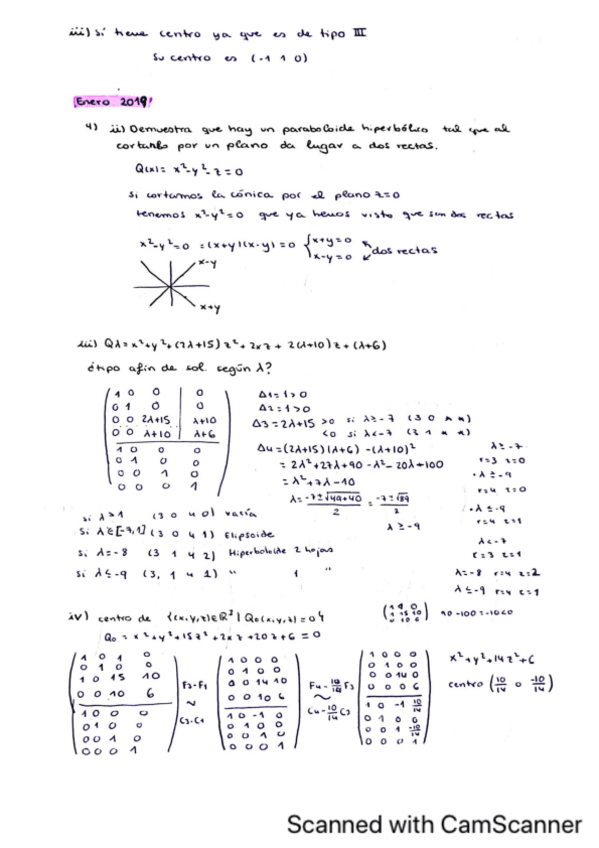 iii) sí tiene centro ya que es de tipo III
Su centro es (-1 1 0)
Enero 2019!
4) ii) Demuestra que hay un paraboloide hiperbólico tal que al
cortarlo por un plano da lugar a dos rectas.
Q(x) = x²-y²-z=0
Si cortamos la cónica por el plano z=0
tenemos x²-y²=0 que ya hemos visto que son dos rectas
x²-y²=0 = (x+y)(x-y)=0 { x+y=0 x-y=0 dos rectas
x-y
x+y
iii) Qλ = x²+y²+(2λ+15)z²+2xz+2(λ+10)z+(λ+6)
¿tipo afín de sol. según λ?
1 0 0 0
0 1 0 0
0 0 2λ+15 λ+10
0 0 λ+10 λ+6
1 0 0 0
0 1 0 0
0 0 1 0
0 0 0 1
Δ1=1>0
Δ2=1>0
Δ3=2λ+15 >0 si λ≥-7 (3 0 * *)
<0 si λ<-7 (3 1 * *)
Δ4=(2λ+15)(λ+6) -(λ+10)²
= 2λ²+27λ+90-λ²-20λ+100
= λ²+7λ-10
λ≥-9
λ≥-7
r=3 s=0
·λ≥-9
r=4
·λ≤-9
λ<-7
λ=-8 r=4 s=2
λ≤-9 r=4 s=1
si λ>1 (3 0 4 0) vacía
Si λ∈[-7,1] (3 0 4 1) Elipsoide
si λ=-8 (3 1 4 2) Hiperboloide 2 hojas
Si λ≤-9 (3, 1 4 1) " 1 "
iv) centro de {(x,y,z)∈R³ | Q0(x,y,z)=0}
Q0 = x²+y²+15z²+2xz+20z+6=0
90-100=-10<0
1 0 1 0
0 1 0 0
1 0 15 10
0 0 10 6
1 0 0 0
0 1 0 0
0 0 1 0
0 0 0 1
F3-F1
~
C3-C1
1 0 0 0
0 1 0 0
0 0 14 10
0 0 10 6
1 0 -1 0
0 1 0 0
0 0 1 0
0 0 0 1
F4-10/14 F3
~
C4-10/14 C3
1 0 0 0
0 1 0 0
0 0 14 0
0 0 0 6
1 0 -1 10/14
0 1 0 0
0 0 1 -10/14
0 0 0 1
x²+y²+14z²+6
centro (10/14 0 -10/14)
Scanned with CamScanner